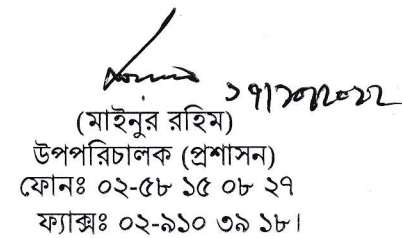 ১৭/১০/২০২২
(মাইনুর রহিম)
উপপরিচালক (প্রশাসন)
ফোনঃ ০২-৫৮ ১৫ ০৮ ২৭
ফ্যাক্সঃ ০২-৯১০ ৩৯ ১৮।